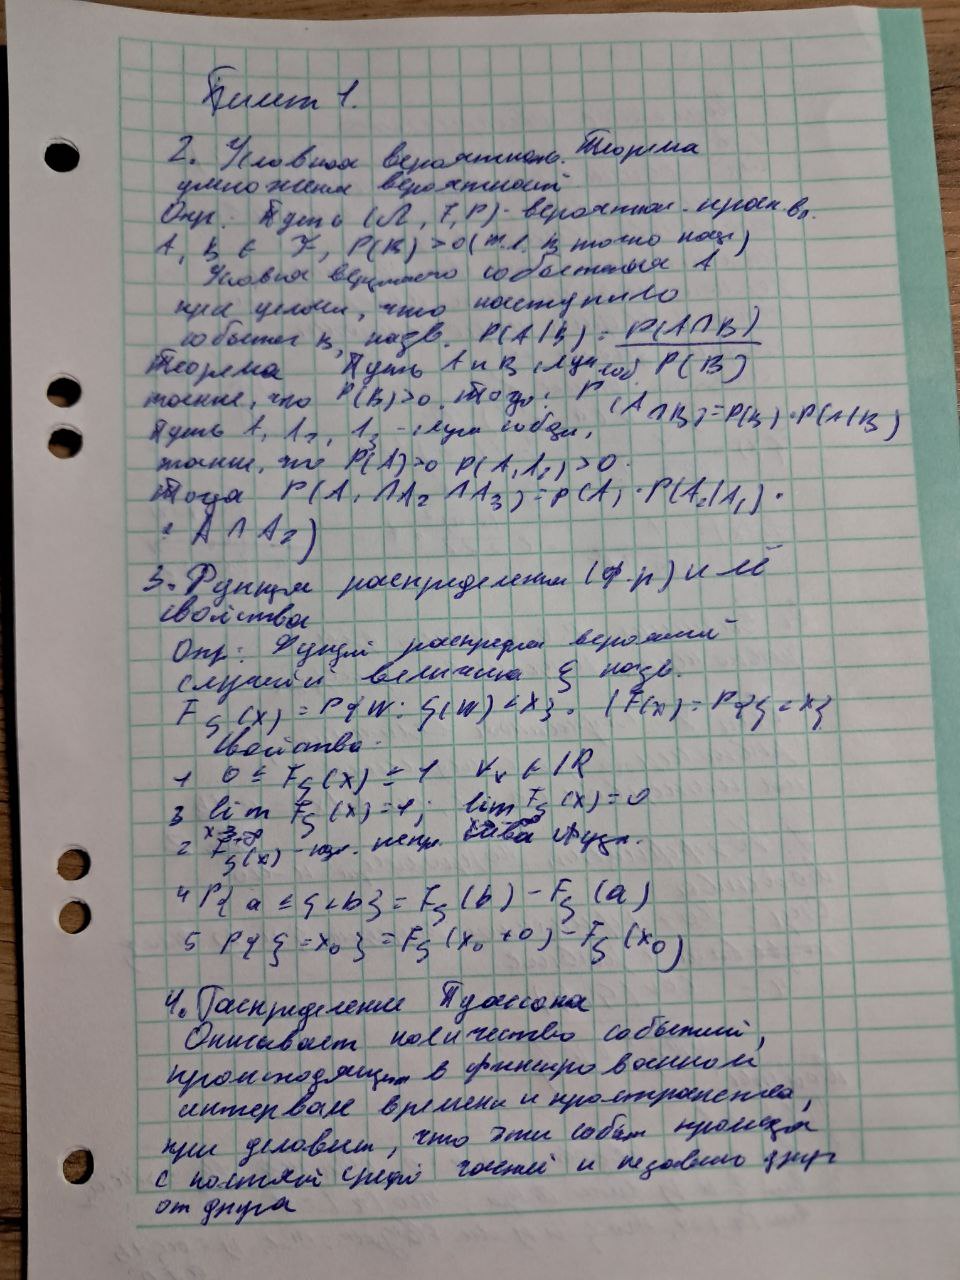 Билет 1.
2. Условная вероятность. Теорема
умножения вероятностей
Опр: Пусть (Ω, F, P) - вероятн. простр-во.
A, B ∈ F, P(B) > 0 (т.е. B точно наш)
Условная события A
при условии, что наступило
событие B, назв. P(A|B) = P(A∩B) / P(B)
Теорема Пусть A и B случ соб.
такие, что P(B)>0. Тогда: P(A∩B)=P(B)·P(A|B)
Пусть A, A₂, A₃ - случ собы,
такие, что P(A)>0 P(A₁A₂)>0.
Тогда P(A₁∩A₂∩A₃)=P(A₁·P(A₂|A₁)·
: A∩A₂)
3. Функция распределения (ф.р) и её
свойства
Опр: Функций распредел вероятней
случайной величина ξ назв.
Fξ(x) = P{w: ξ(w)<x}. (F(x)=P{ξ<x}
Свойства.
1 0 ≤ Fξ(x) ≤ 1 ∀x ∈ ℝ
3 lim Fξ(x)=1; lim Fξ(x)=0
x→+∞ x→-∞
2 Fξ(x) - непр. слева функ.
4 P{a ≤ ξ<b}= Fξ(b) - Fξ(a)
5 P{ξ=x₀}=Fξ(x₀+0)-Fξ(x₀)
4. Распределение Пуассона
Описывает количество событий,
происходящих в фиксированном
интервале времени и пространства,
при условии, что эти событ
с и независимо друг
от друга